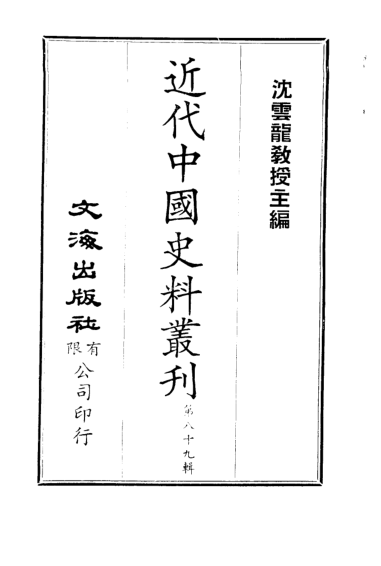 沈雲龍教授主編
近代中國史料叢刊
第八十九輯
文海出版社
有限
公司印行